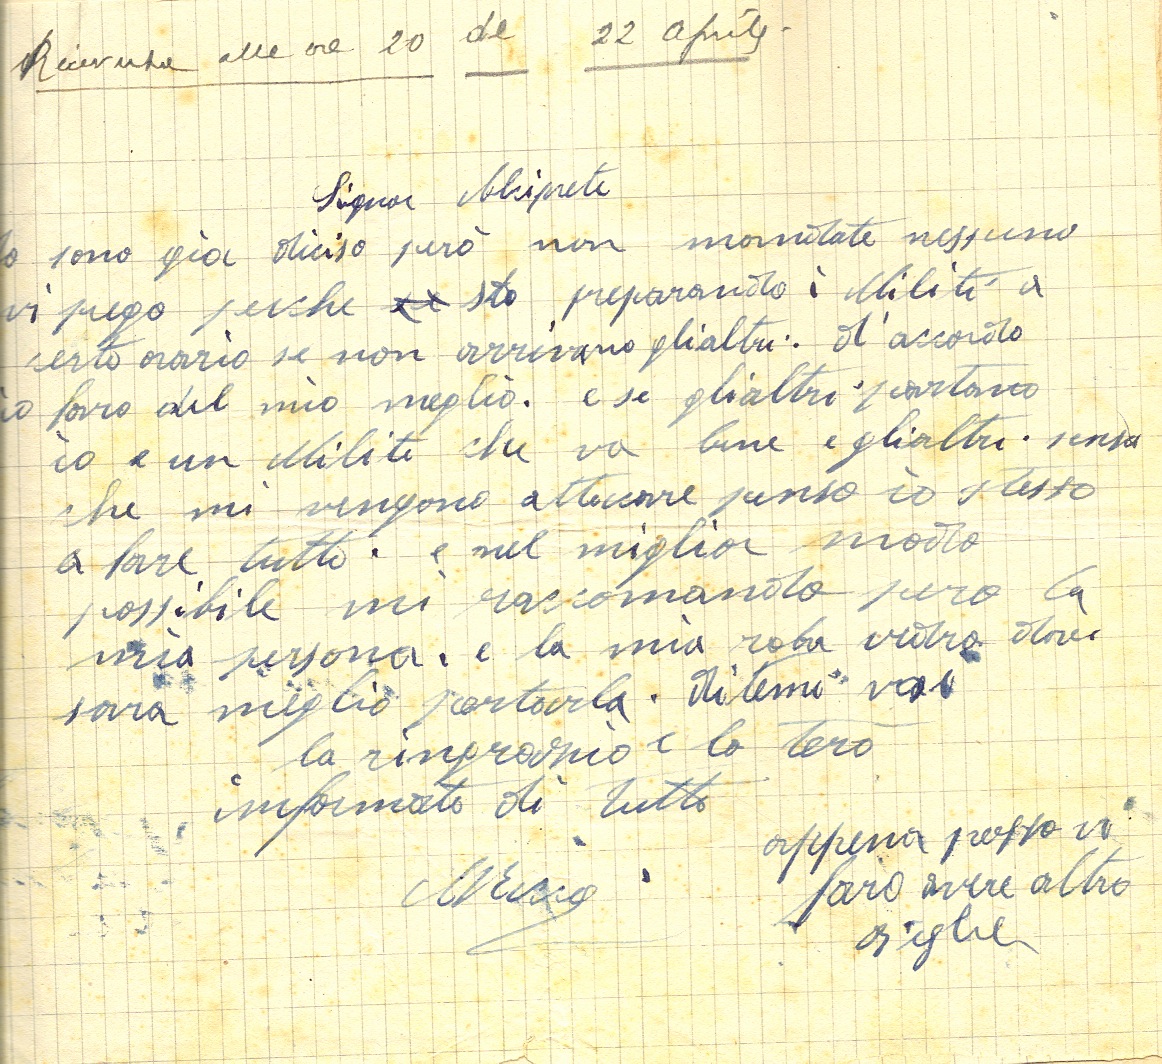 Ricevuta alle ore 20 del 22 Aprile
Signor Alciprete
Io sono già diciso però non mandate nessuno
vi prego perche sto preparando i Militi a
certo orario se non arrivano glialtri. d'accordo
io faro del mio meglio. e se glialtri partano
io e un Militi che va bene e glialtri. sensa
che mi vengono attaccare penso io stesso
a fare tutto. e nel miglior modo
possibile mi raccomando pero la
mia persona. e la mia roba vedra dove
sara meglio portarla. ditemi voi
la ringrazio e lo tero
informato di tutto
appena posso vi
farò avere altro
biglie